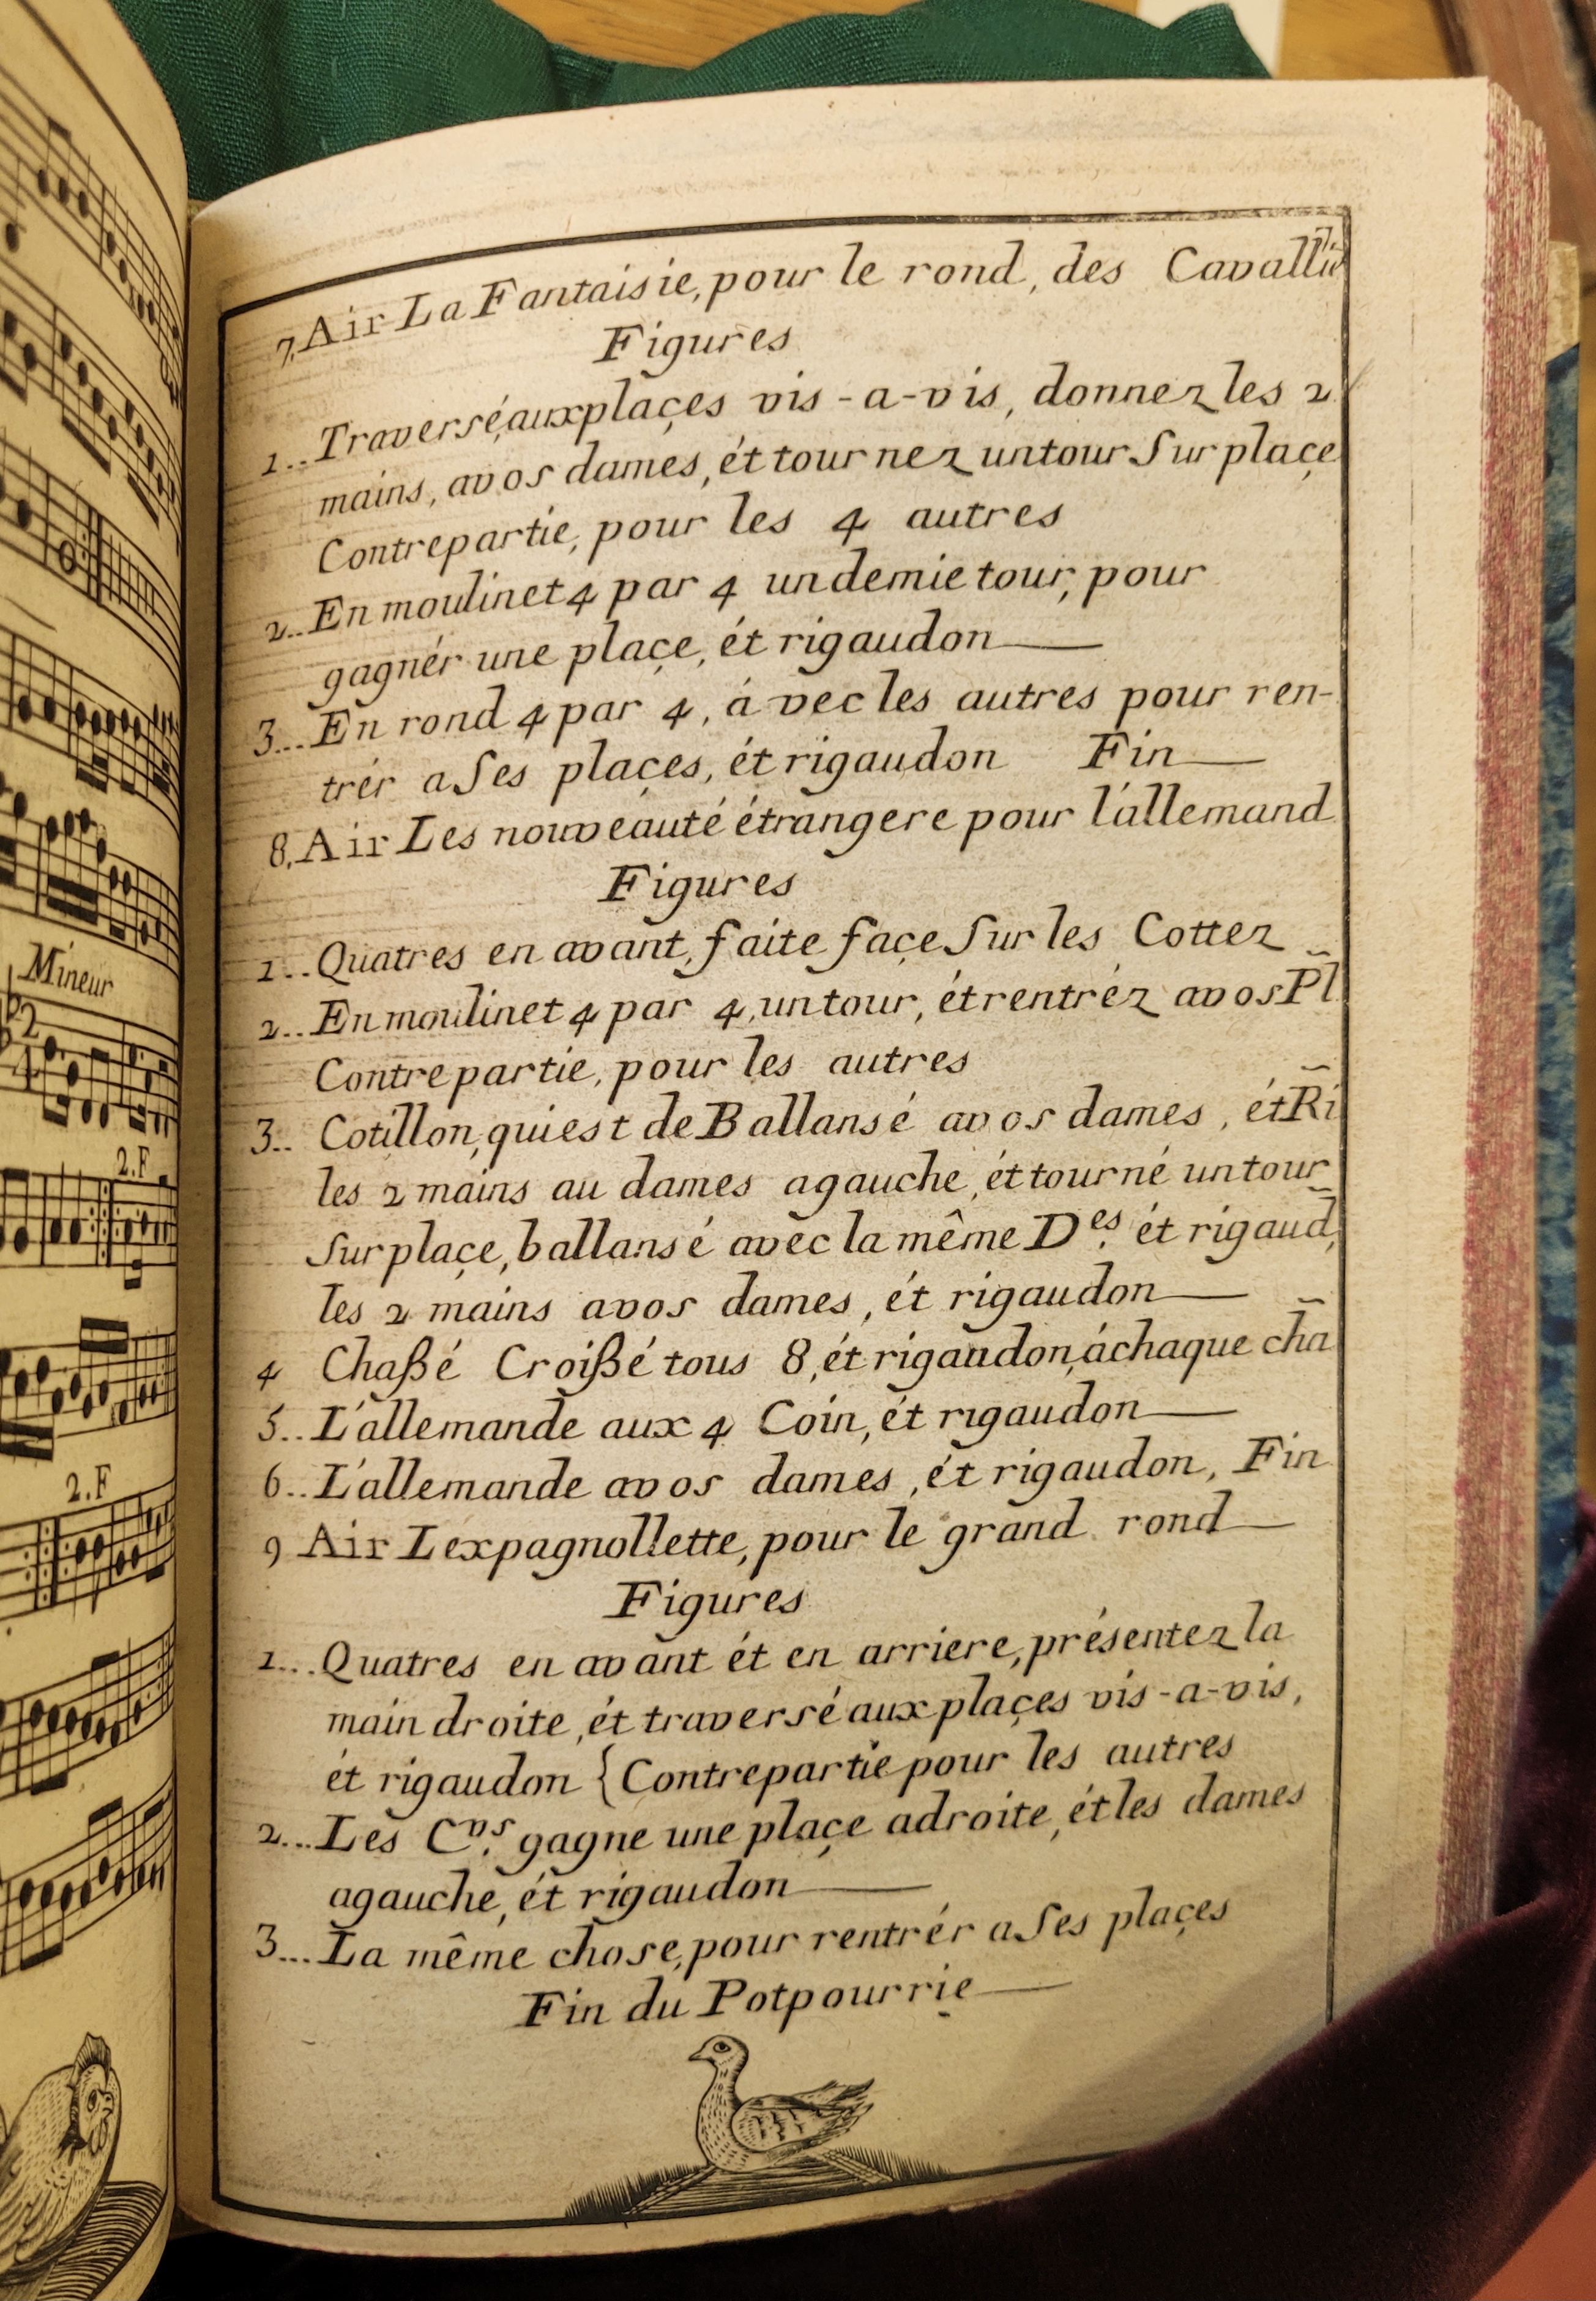 Mineur
2
4
2.F
2.F
7, Air La Fantaisie, pour le rond, des Cavallie
Figures
1.. Traversé, aux plaçes vis-a-vis, donnez les 2
mains, a vos dames, ét tournez un tour Sur plaçe
Contrepartie, pour les 4 autres
2.. En moulinet 4 par 4 un demie tour, pour
gagnér une plaçe, ét rigaudon
3... En rond 4 par 4, ávec les autres pour ren-
trér a Ses plaçes, ét rigaudon Fin
8, Air Les nouveáuté étrangere pour l'állemand
Figures
1.. Quatres en avant, faite façe Sur les Cottez
2.. En moulinet 4 par 4, un tour, ét rentréz a vos Pl
Contrepartie, pour les autres
3.. Cotillon, qui est de Ballansé a vos dames, ét Ri
les 2 mains au dames a gauche, ét tourné un tour
Sur plaçe, ballansé avec la même D.es ét rigaud,
les 2 mains a vos dames, ét rigaudon
4 Chaßé Croißé tous 8, ét rigaudon, á chaque cha
5.. L'allemande aux 4 Coin, ét rigaudon
6.. L'allemande a vos dames, ét rigaudon, Fin
9 Air Lexpagnollette, pour le grand rond
Figures
1... Quatres en avant ét en arriere, présentez la
main droite, ét traversé aux plaçes vis-a-vis,
ét rigaudon { Contrepartie pour les autres
2... Les C.vs gagne une plaçe a droite, ét les dames
a gauche, ét rigaudon
3... La même chose, pour rentrér a Ses plaçes
Fin du Potpourrie